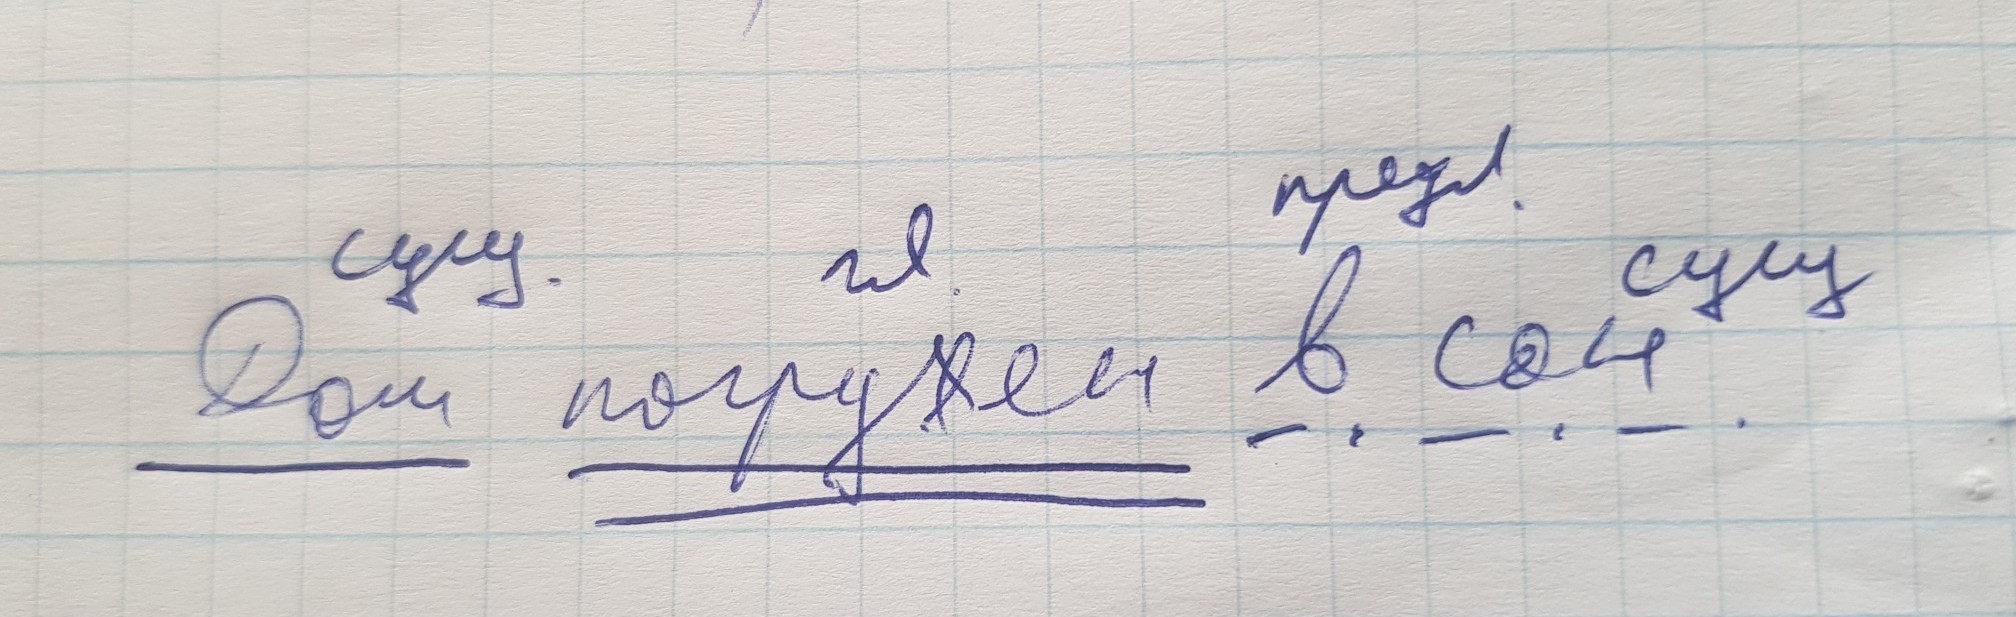 сущ. гл. предл. сущ
Дом погружен в сон